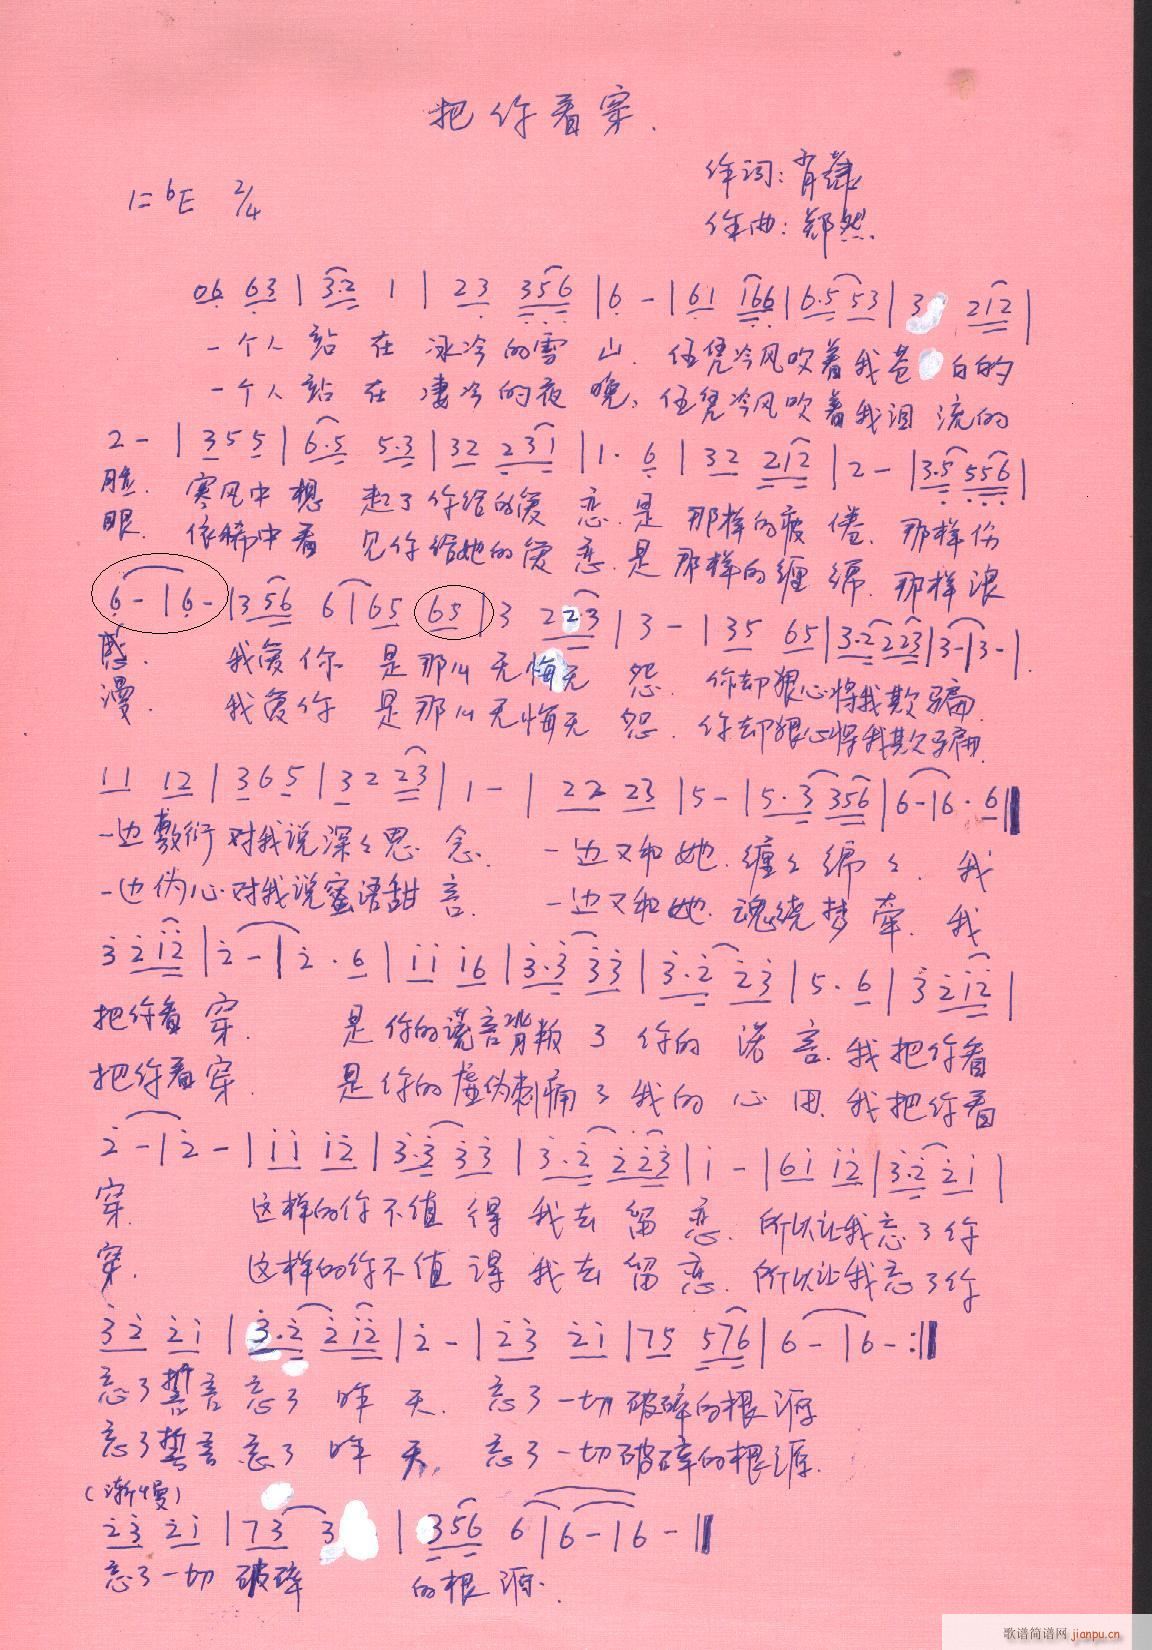 把你看穿.
作词:肖
1=bE 2/4
作曲:郑然
06 63 | 3·2 1 | 23 356 | 6 - | 61 166 | 6·5 53 | 3 212 |
一个人站在冰冷的雪山.任凭冷风吹着我苍白的
一个人站在凄冷的夜晚,任凭冷风吹着我泪流的
2 - | 3 5 5 | 6·5 5·3 | 32 231 | 1· 6 | 32 212 | 2 - | 3·5 556 |
脸. 寒风中想起了你给的爱恋.是那样的疲倦.那样伤
眼. 依稀中看见你给她的爱恋.是那样的缠绵.那样浪
6 - | 6 - | 3 56 6 | 65 65 | 3 22·3 | 3 - | 35 65 | 3·2 223 | 3 - | 3 - |
感. 我爱你是那么无悔无怨.你却狠心将我欺骗.
漫. 我爱你是那么无悔无怨.你却狠心将我欺骗.
11 12 | 3 6 5 | 3 2 23 | 1 - | 22 23 | 5 - | 5·3 356 | 6 - | 6· 6 ‖
一边敷衍对我说深々思念. 一边又和她.缠々绵々.我
一边伪心对我说蜜语甜言. 一边又和她.魂绕梦牵.我
3 2 12 | 2 - | 2· 6 | 11 16 | 3·3 33 | 3·2 23 | 5· 6 | 3 212 |
把你看穿. 是你的谎言背叛了你的诺言.我把你看
把你看穿. 是你的虚伪刺痛了我的心田.我把你看
2 - | 2 - | 11 12 | 3·3 33 | 3·2 223 | 1 - | 61 12 | 3·2 21 |
穿. 这样的你不值得我去留恋.所以让我忘了你
穿. 这样的你不值得我去留恋.所以让我忘了你
32 21 | 3·2 212 | 2 - | 23 21 | 75 576 | 6 - | 6 - :‖
忘了誓言忘了昨天.忘了一切破碎的根源
忘了誓言忘了昨天,忘了一切破碎的根源.
(渐慢)
23 21 | 73 3 | 356 6 | 6 - | 6 - ‖
忘了一切破碎 的根源.
歌谱简谱网 jianpu.cn